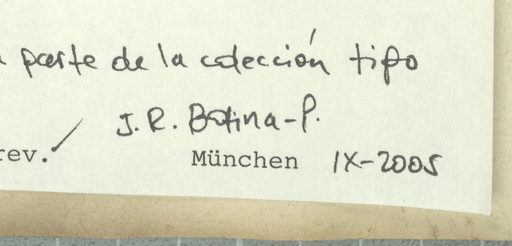 parte de la colección tipo
J.R. Botina-P.
rev. München IX-2005